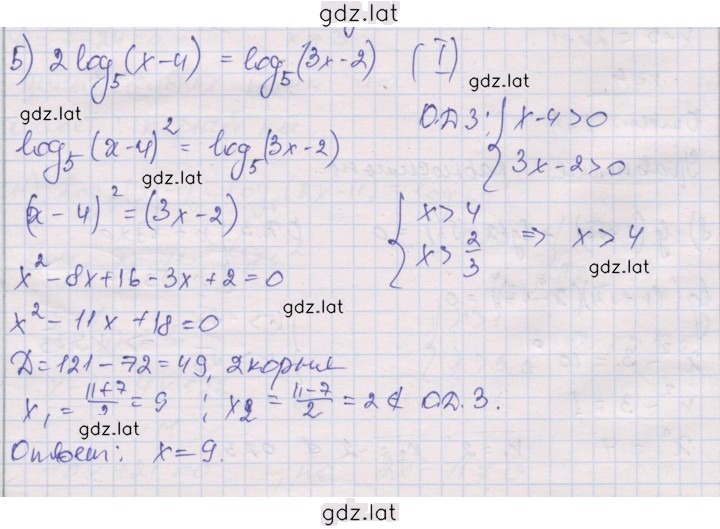 gdz.lat
5) 2 log₅(x-4) = log₅(3x-2) (I)
gdz.lat
gdz.lat
О.Д.З: { x-4>0
log₅(x-4)² = log₅(3x-2)
3x-2>0
gdz.lat
(x-4)² = (3x-2)
{ x>4
x>2/3 ⇒ x>4
gdz.lat
x² - 8x+16 - 3x + 2 = 0
gdz.lat
x² - 11x + 18 = 0
Д = 121 - 72 = 49, 2 корня
x₁ = (11+7)/2 = 9 ; x₂ = (11-7)/2 = 2 ∉ О.Д.З.
gdz.lat
Ответ: x = 9.
gdz.lat